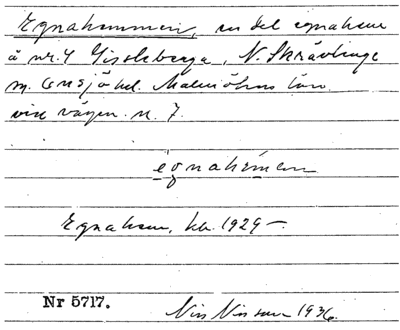 Egnahemmen, en del egnahem
å nr. 4 Gissleberga, N. Skrävlinge
m. Onsjö hd. Malmöhus län
vid vägen n. 7.
egnahemen
Egnahem, kb. 1929–
Nr 5717.
Nils Nilsson 1936.